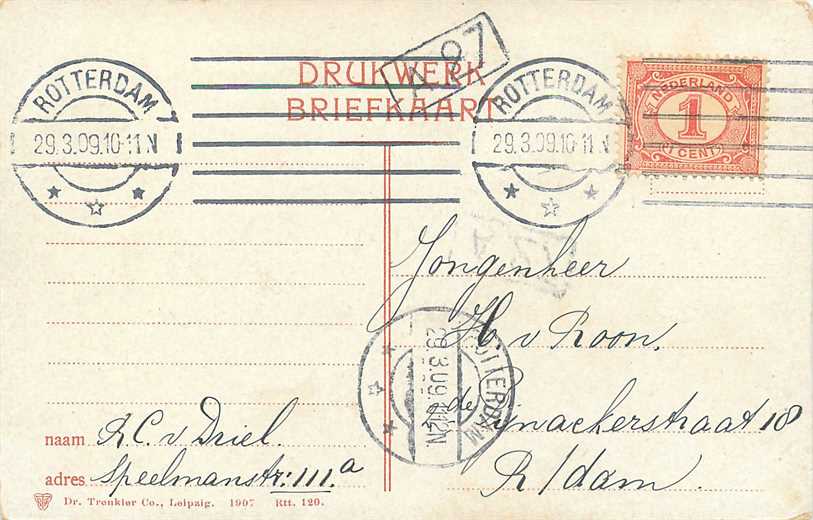 A 97
DRUKWERK
BRIEFKAART
ROTTERDAM
29.3.09.10-11 N
ROTTERDAM
29.3.09.10-11 N
NEDERLAND
1
(1 CENT)
Jongenheer
H. v Roon.
ROTTERDAM
29.3.09. N.
de Rynackerstraat 18
R/dam.
naam R.C. v. Driel.
adres Speelmanstr: 111.a
Dr. Trenkler Co., Leipzig. 1907 Rtt. 120.